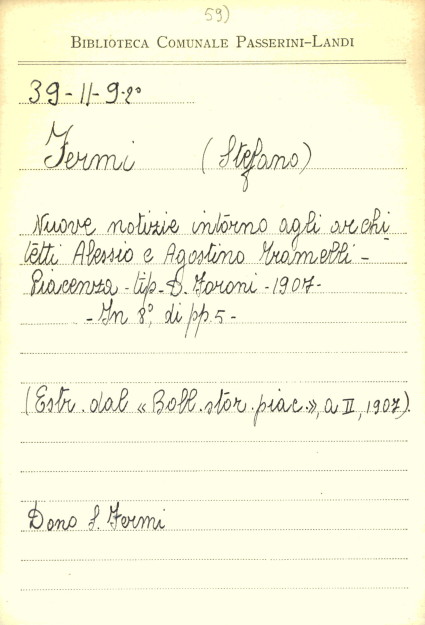 59)
BIBLIOTECA COMUNALE PASSERINI-LANDI
39-11-9-2°
Fermi (Stefano)
Nuove notizie intorno agli archi
tetti Alessio e Agostino Tramelli -
Piacenza - tip. D. Foroni - 1907 -
- In 8°, di pp. 5 -
(Estr. dal «Boll. stor. piac.», a II, 1907).
Dono S. Fermi